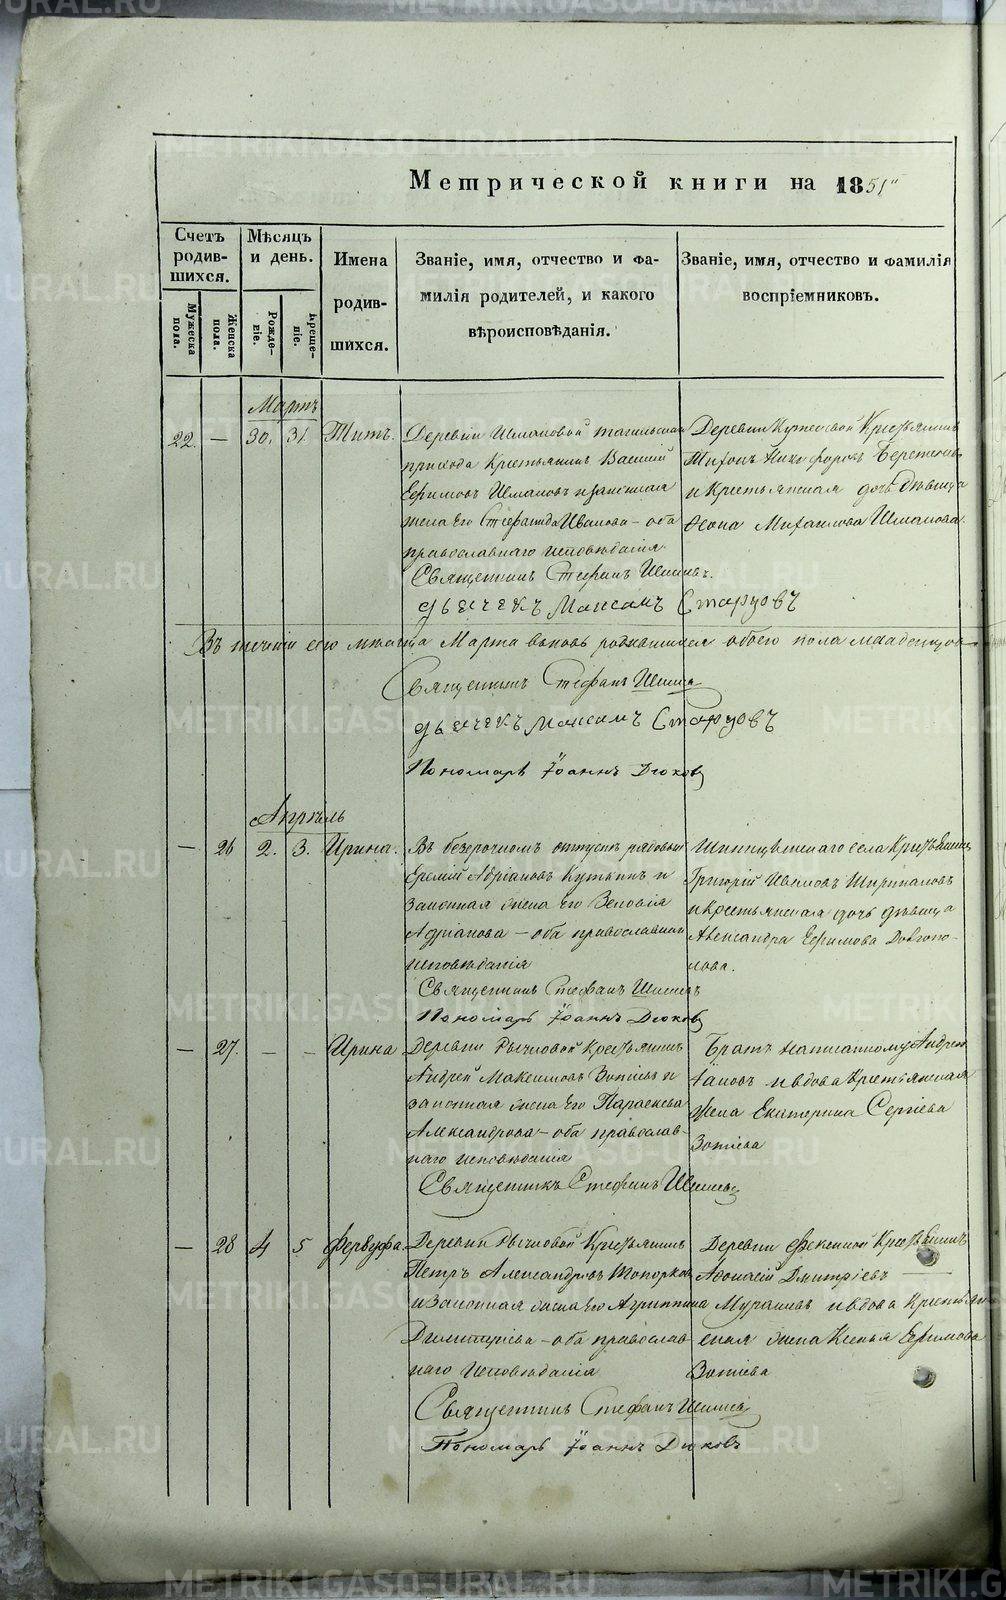 Метрической книги на 1851
Счетъ родив-шихся.
Мужеска пола.
Женска пола.
Мѣсяцъ и день.
Рожде-ніе.
Креще-ніе.
Имена родив-шихся.
Званіе, имя, отчество и фа-
милія родителей, и какого
вѣроисповѣданія.
Званіе, имя, отчество и фамилія
воспріемниковъ.
Мартъ
22. — 30. 31. Титъ.
Деревни Шмаковой тагильскаго
прихода Крестьянинъ Василій
Ефимовъ Шмаковъ и законная
жена его Стефанида Иванова – оба
православнаго исповѣданія.
Священникъ Стефанъ
дьячекъ Максимъ Старцовъ
Деревни Крестьянинъ
Тихонъ Никифоровъ
и Крестьянская дочь дѣвица
Михаилова Шмакова.
Въ теченіи сего мѣсяца Марта вновь родившихся обоего пола младенцовъ
Священникъ Стефанъ
дьячекъ Максимъ Старцовъ
Пономарь Іоаннъ Дюковъ
Апрѣль
— 26 2. 3. Ирина.
Въ безсрочномъ отпускѣ рядовый
Еремій Адріановъ Кутьинъ и
законная жена его Зеновія
Адрианова – оба православнаго
исповѣданія
Священникъ Стефанъ
Пономарь Іоаннъ Дюковъ
села Крестьянинъ
Григорій Ивановъ
и крестьянская дочь дѣвица
Александра Ефимова Долгопо-
лова.
— 27. – – Ирина
Деревни Рычковой Крестьянинъ
Андрей Максимовъ Зотіевъ и
законная жена его Параскева
Александрова – оба православ-
наго исповѣданія
Священникъ Стефанъ
Братъ написанному Андрею
и вдова Крестьянская
жена Екатерина Сергіева
Зотіева
— 28 4 5 Фервуфа.
Деревни Рычковой Крестьянинъ
Петръ Александровъ Топорковъ
и законная жена его Агриппина
Димитріева – оба православ-
наго исповѣданія
Священникъ Стефанъ
Пономарь Іоаннъ Дюковъ
Деревни Крестьянинъ
Афонасій Дмитріевъ
и вдова Крестьян-
ская жена Ксенья Ефимова
Зотіева
METRIKI.GASO-URAL.RU